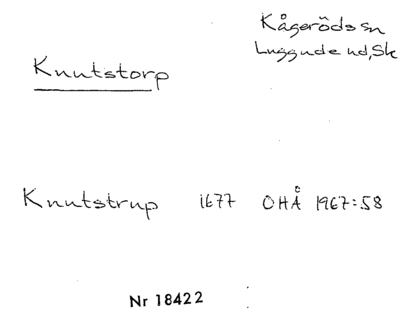 Kågeröds sn
Luggude hd, Sk
Knutstorp
Knutstrup 1677 OHÅ 1967:58
Nr 18422